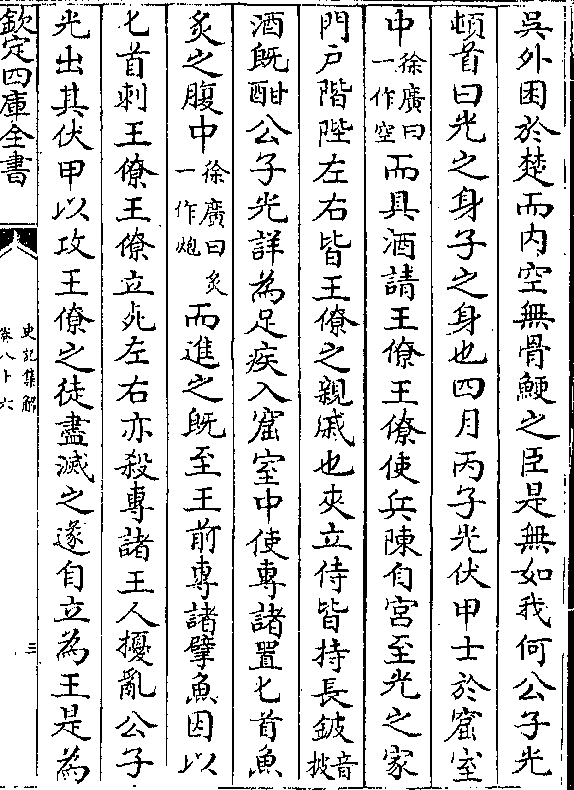 吳外困於楚而内空無骨鯁之臣是無如我何公子光
頓首曰光之身子之身也四月丙子光伏甲士於窟室
中徐廣曰一作空而具酒請王僚王僚使兵陳自宮至光之家
門戸階陛左右皆王僚之親戚也夾立侍皆持長鈹音披
酒既酣公子光詳為足疾入窟室中使專諸置匕首魚
炙之腹中徐廣曰炙一作炮而進之既至王前專諸擘魚因以
匕首刺王僚王僚立死左右亦殺專諸王人擾亂公子
光出其伏甲以攻王僚之徒盡滅之遂自立為王是為
欽定四庫全書
史記集解
卷八十六
三